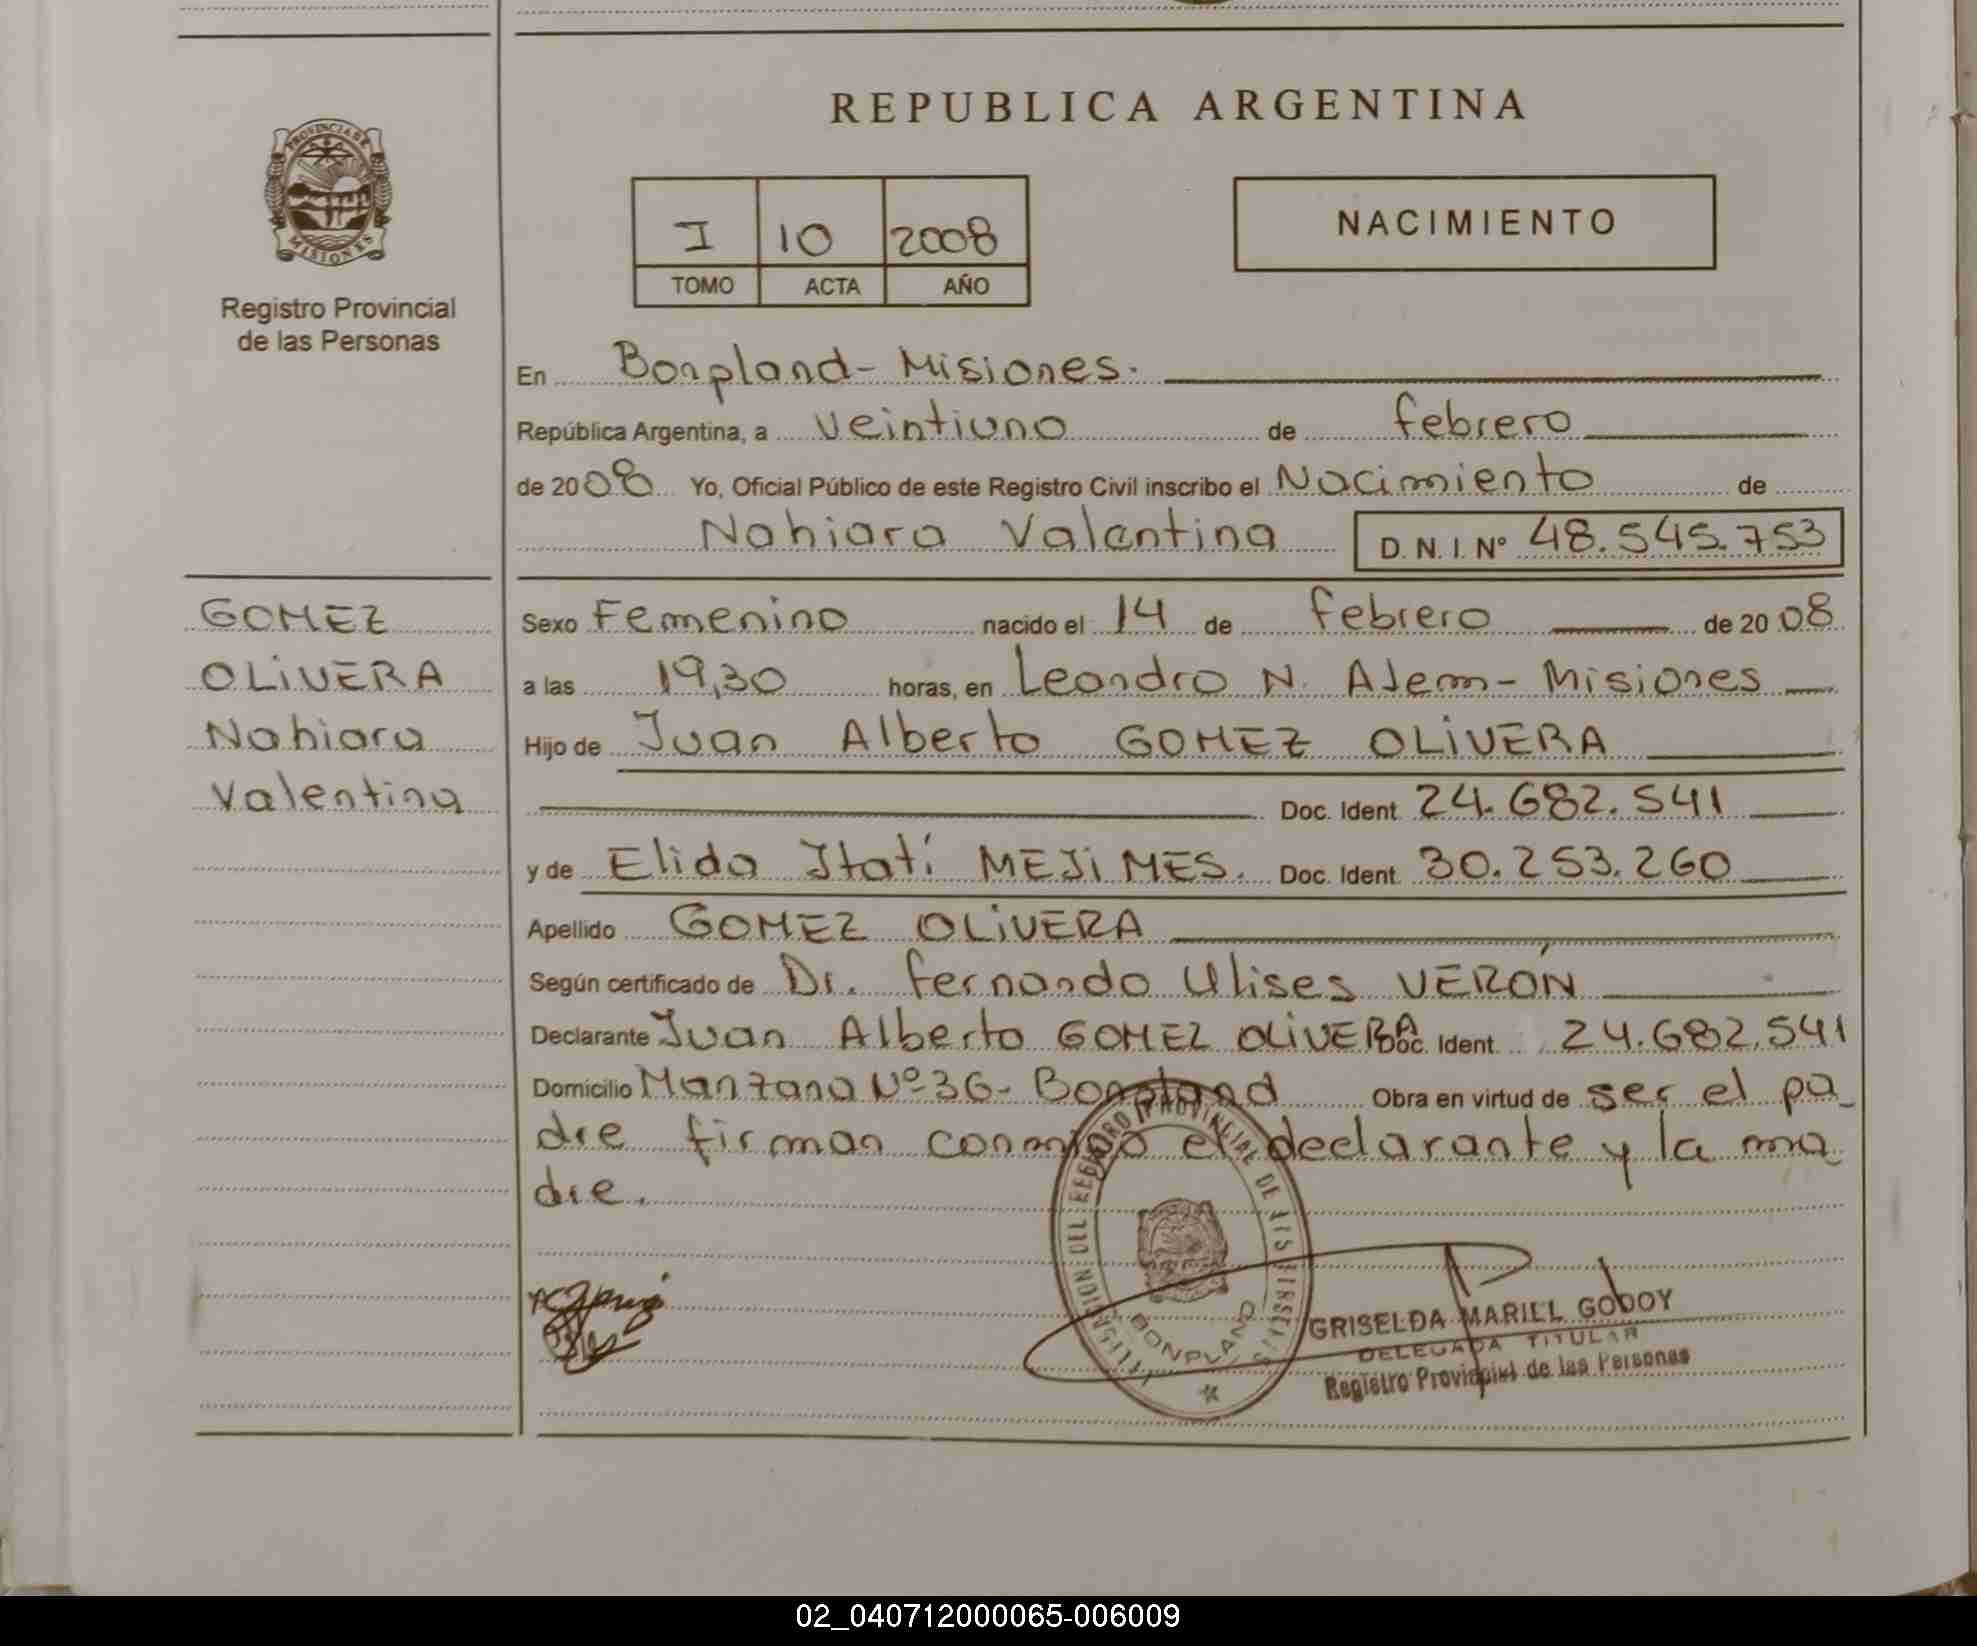 PROVINCIA DE
MISIONES
Registro Provincial
de las Personas
GOMEZ
OLIVERA
Nahiara
Valentina
REPUBLICA ARGENTINA
I 10 2008
TOMO ACTA AÑO
NACIMIENTO
En Bonpland - Misiones.
República Argentina, a veintiuno de febrero
de 2008 Yo, Oficial Público de este Registro Civil inscribo el Nacimiento de
Nahiara Valentina D. N. I. Nº 48.545.753
Sexo Femenino nacido el 14 de febrero de 2008
a las 19,30 horas, en Leandro N. Alem - Misiones
Hijo de Juan Alberto GOMEZ OLIVERA
Doc. Ident. 24.682.541
y de Elida Itatí MEJIMES. Doc. Ident. 30.253.260
Apellido GOMEZ OLIVERA
Según certificado de Dr. Fernando Ulises VERÓN
Declarante Juan Alberto GOMEZ OLIVERA Doc. Ident. 24.682.541
Domicilio Manzana Nº 36 - Bonpland Obra en virtud de ser el pa_
dre firman conmigo el declarante y la ma_
dre.
DEL REGISTRO PROVINCIAL DE LAS PERSONAS
BONPLAND
GRISELDA MARIEL GODOY
DELEGADA TITULAR
Registro Provincial de las Personas
02_040712000065-006009